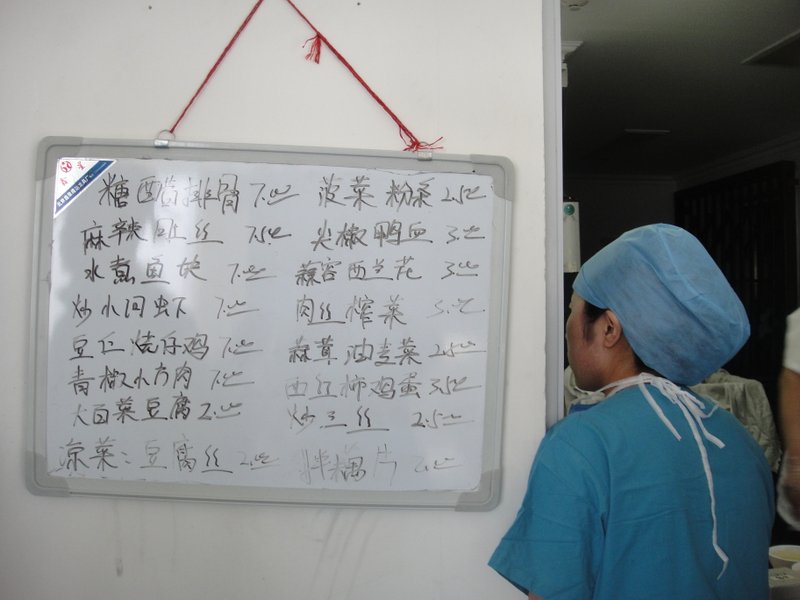 糖醋排骨 7.00 菠菜粉条 2.50
麻辣肚丝 7.50 尖椒鸭血 3.00
水煮鱼 7.00 蒜容西兰花 3.00
炒小河虾 7.00 肉丝榨菜
豆仁烧仔鸡 7.00 蒜茸油麦菜 2.50
青椒小方肉 7.00 西红柿鸡蛋 3.50
大白菜豆腐 2.00 炒三丝 2.50
凉菜：豆腐丝 2.00 拌藕片 2.00